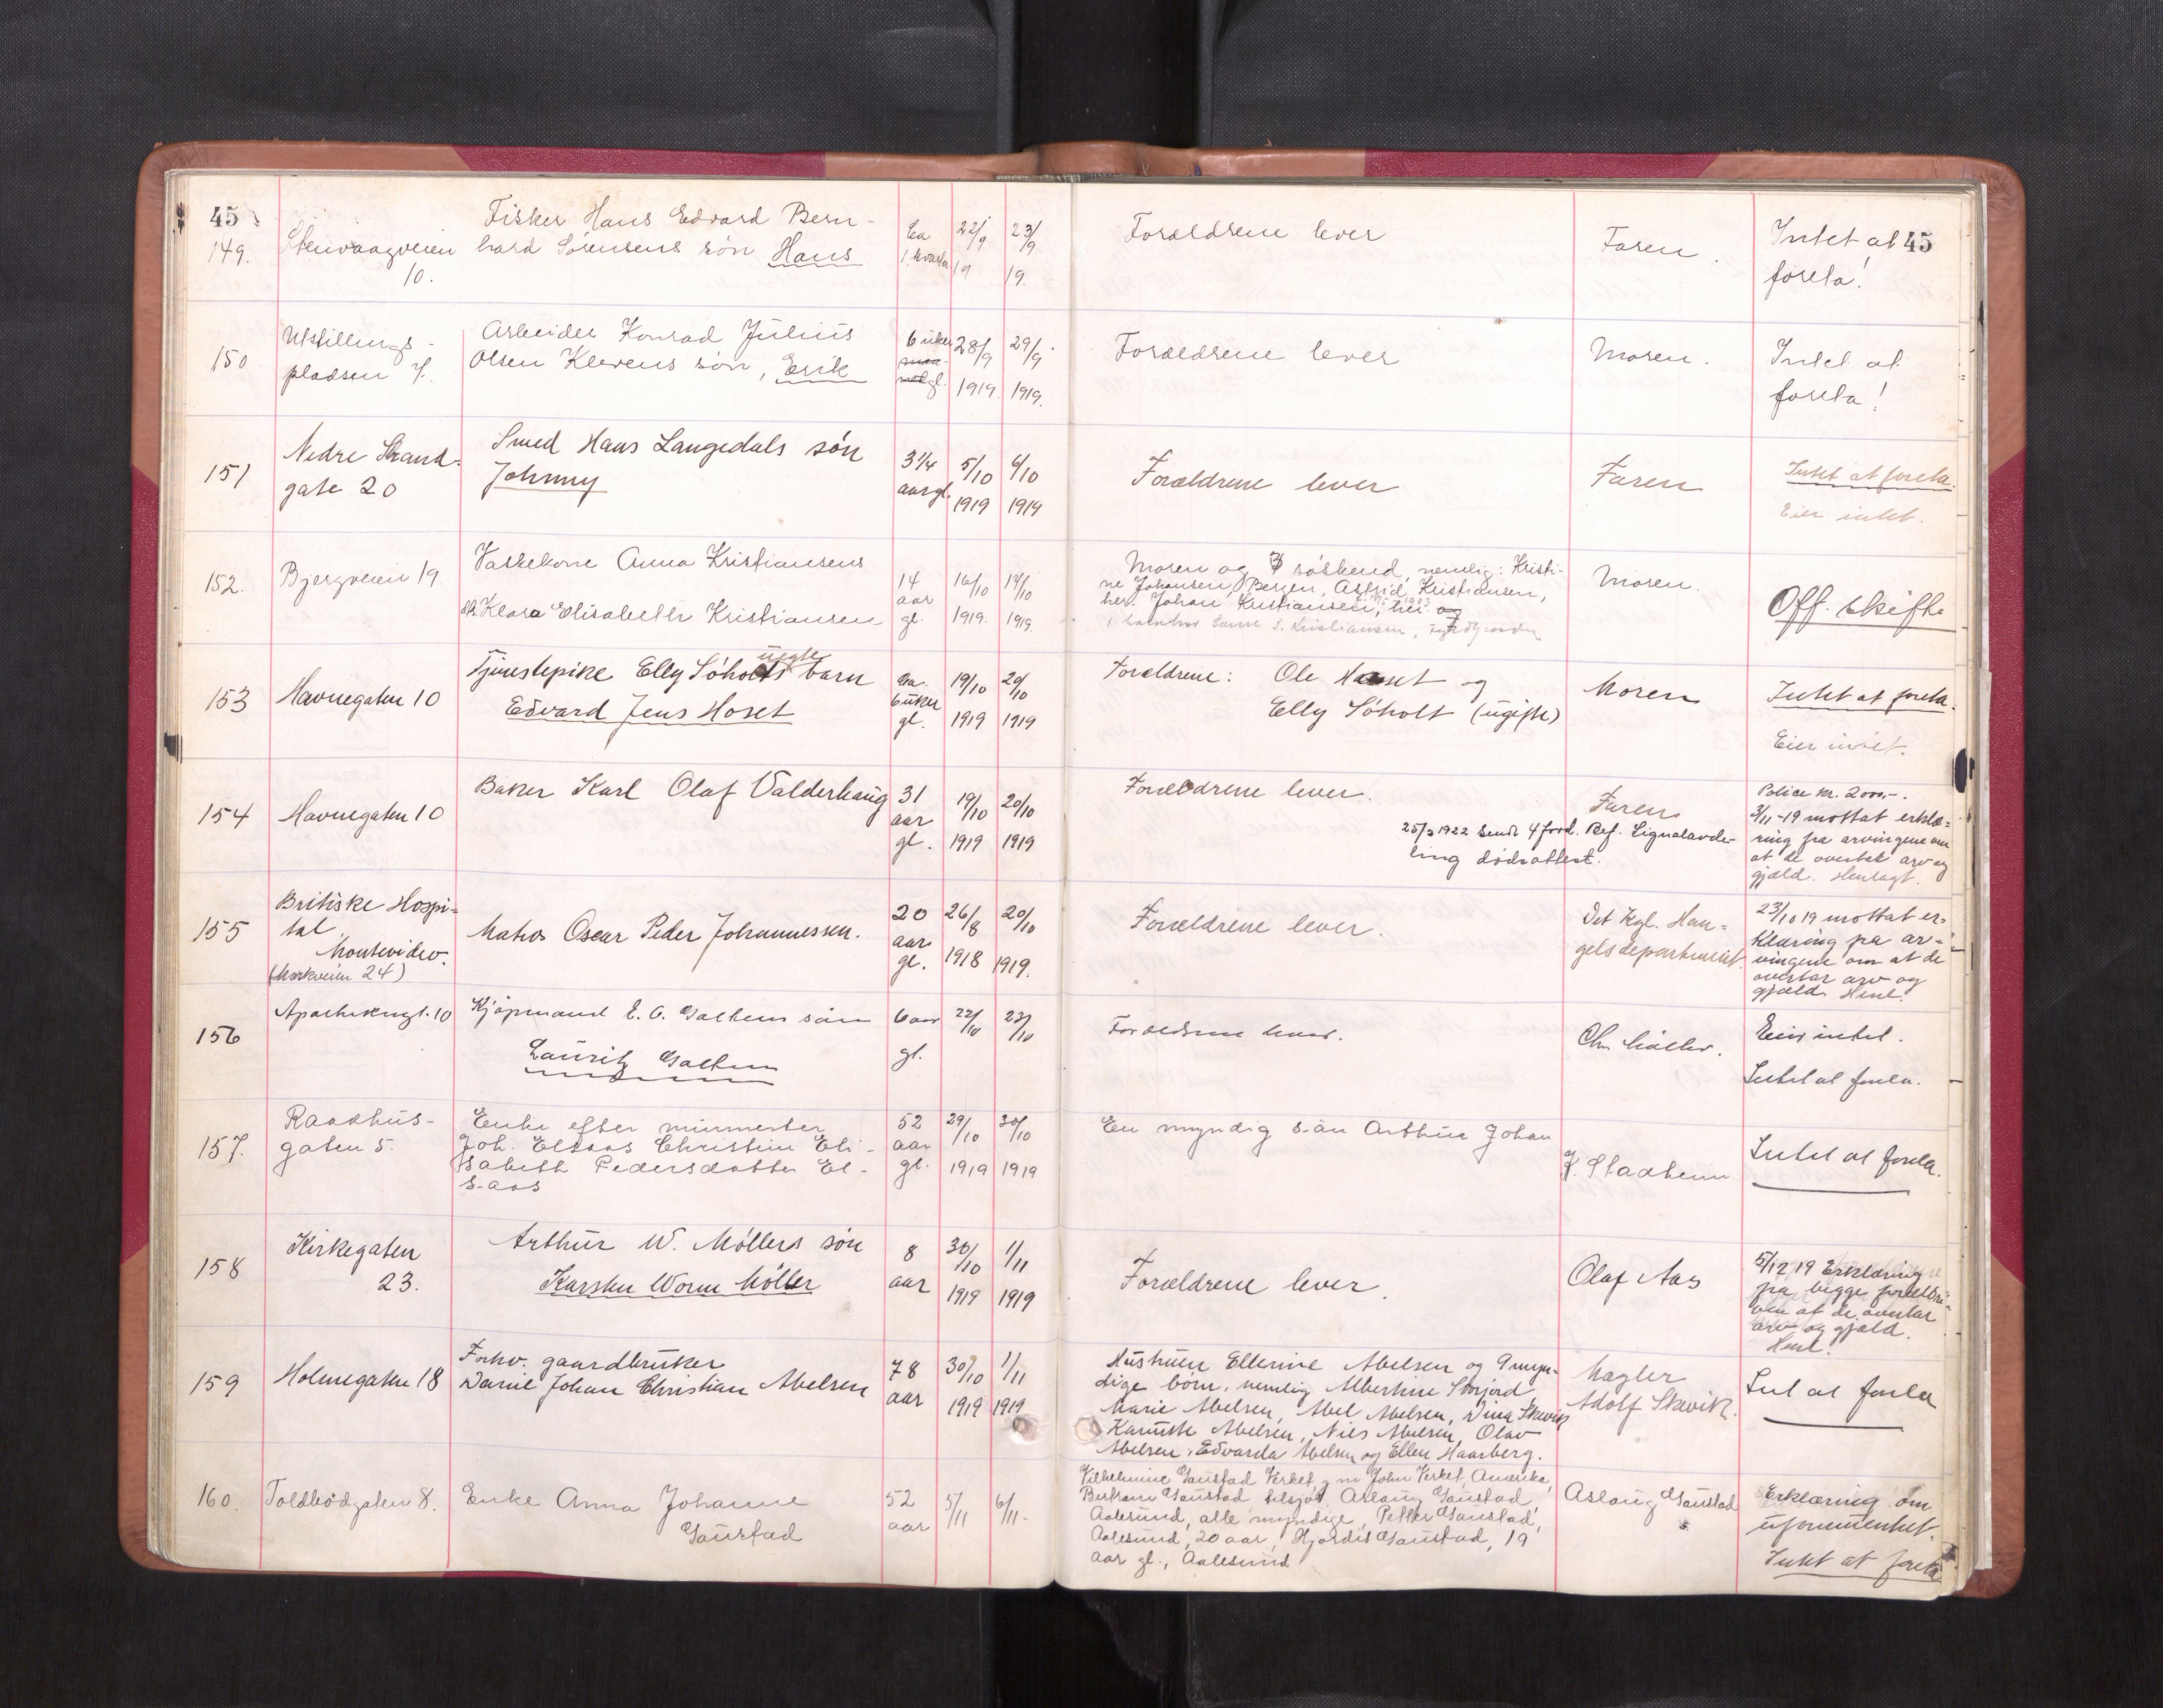 45
45
149.
Stenvaagveien
10.
Fisker Hans Edvard Bern-
hard Sörensens sön Hans
Ca
1. kvarter
22/9
19
23/9
19.
Forældrene lever
Faren.
Intet at
foreta!
150
Utstillings-
pladsen 7.
Arbeider Konrad Julius
Olsen Klevens sön, Erik
6 uker
gl.
28/9
1919.
29/9
1919.
Forældrene lever
Moren.
Intet at
foreta!
151
Nedre Strand-
gate 20
Smed Hans Langedals sön
Johnny
3 1/4
aar gl.
5/10
1919
6/10
1919
Forældrene lever
Faren
Intet at foreta.
Eier intet.
152.
Bjergveien 19.
Vaskekone Anna Kristiansens
dtr. Klara Elisabeth Kristiansen
14
aar
gl.
16/10
1919.
17/10
1919.
Moren og söskend, nemlig: Kristi-
ne Johansen, Bergen, Astrid Kristiansen,
her. Johan Kristiansen, her. og
S. Kristiansen,
Moren.
Off. skifte
153
Havnegaten 10
Tjenestepike Elly Söholts uegte barn
Edvard Jens Hoset
ca.
6 uker
gl.
19/10
1919
20/10
1919
Forældrene: Ole Hoset og
Elly Söholt (ugifte)
Moren
Intet at foreta.
Eier intet.
154
Havnegaten 10
Baker Karl Olaf Valderhaug
31
aar
gl.
19/10
1919
20/10
1919
Forældrene lever.
Faren
25/3 1922 sendt 4 ford. Ref. Signalavde-
ling dödsattest.
Police kr. 2000,-.
3/11-19 mottat erklæ-
ring fra arvingene om
at de overtar arv og
gjæld. Henlagt.
155
Britiske Hospi-
tal
Montevideo.
(Morkveien 24)
Matros Oscar Peder Johannessen.
20
aar
gl.
26/8
1918
20/10
1919.
Forældrene lever.
Det Kgl. Han-
delsdepartement.
23/10 19 mottat er-
klæring fra ar-
vingene om at de
overtar arv og
gjæld. Henl.
156
Apothekergt. 10
Kjöpmand E. A. Galtens sön
Lauritz Galten
6 aar
gl.
22/10
23/10
Forældrene lever.
Chr. Möller.
Eier intet.
Intet at foreta.
157.
Raadhus-
gaten 5.
Enke efter murmester
Joh. Elsaas Christine Eli-
sabeth Pedersdatter El-
saas
52
aar
gl.
29/10
1919
30/10
1919
En myndig sön Arthur Johan
K. Stadheim
Intet at foreta.
158
Kirkegaten
23.
Arthur W. Möllers sön
Karsten Worm Möller
8
aar
30/10
1919
1/11
1919
Forældrene lever.
Olaf Aas
5/12 19 Erklæring
fra begge forældre-
ne om at de overtar
arv og gjæld.
Henl.
159
Holmegaten 18
Forhv. gaardbruker
Daniel Johan Christian Abelsen
78
aar
30/10
1919
1/11
1919
Hustruen Ellerine Abelsen og 9 myn-
dige börn, nemlig Albertine Storjord
Marie Abelsen, Abel Abelsen, Dina Skevik
Kanutte Abelsen, Nils Abelsen, Olav
Abelsen, Edvarda Abelsen og Ellen Haarberg.
Mægler
Adolf Skevik.
Int at foreta
160.
Toldbodgaten 8.
Enke Anna Johanne
Gaustad
52
aar
5/11
6/11-
Vilhelmine Gaustad Verket g. m. John Verket, Amerika,
Bertram Gaustad, tilsjös, Aslaug Gaustad,
Aalesund, alle myndige, Petter Gaustad,
Aalesund, 20 aar, Hjördis Gaustad, 19
aar gl., Aalesund
Aslaug Gaustad
Erklæring om
uformuenhet.
Intet at foreta